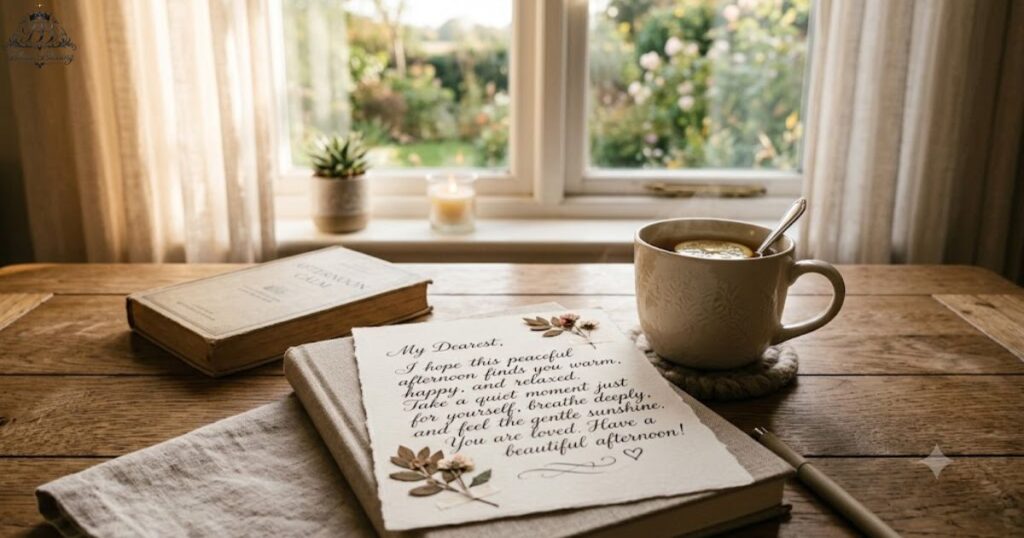 AFTERNOON
CALM
My Dearest,
I hope this peaceful
afternoon finds you warm,
happy, and relaxed.
Take a quiet moment just
for yourself, breathe deeply,
and feel the gentle sunshine.
You are loved. Have a
beautiful afternoon!